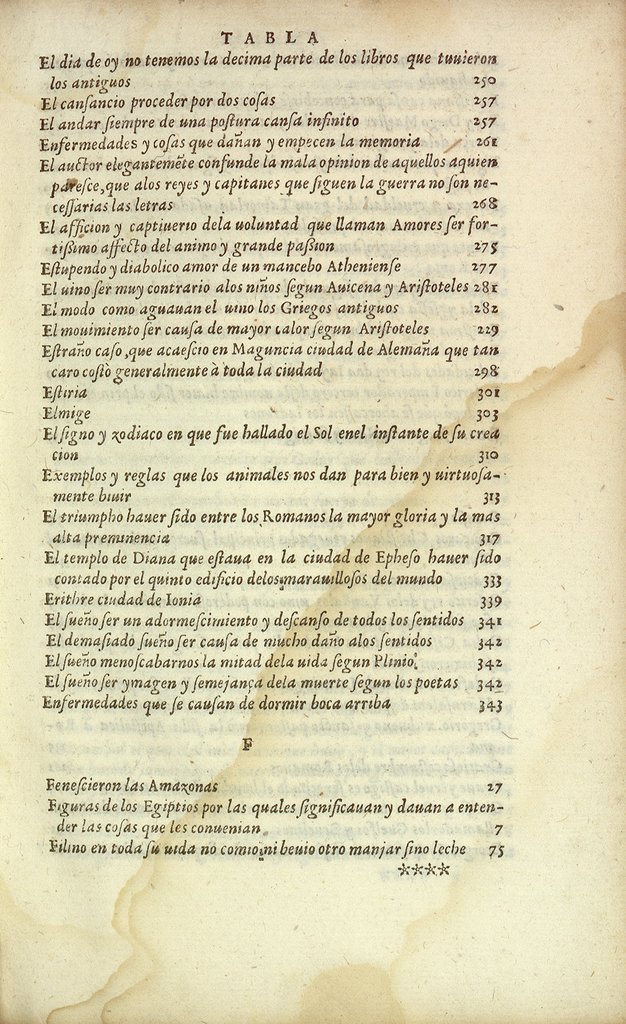 TABLA
El dia de oy no tenemos la decima parte de los libros que tuuieron
los antiguos 250
El cansancio proceder por dos cosas 257
El andar siempre de una postura cansa infinito 257
Enfermedades y cosas que dañan y empecen la memoria 261
El auctor elegantemẽte confunde la mala opinion de aquellos aquien
paresce, que alos reyes y capitanes que siguen la guerra no son ne-
cessarias las letras 268
El afficion y captiuerio dela uoluntad que llaman Amores ser for-
tissimo affecto del animo y grande passion 275
Estupendo y diabolico amor de un mancebo Atheniense 277
El uino ser muy contrario alos niños segun Auicena y Aristoteles 281
El modo como aguauan el uino los Griegos antiguos 282
El mouimiento ser causa de mayor calor segun Aristoteles 229
Estraño caso, que acaescio en Maguncia ciudad de Alemaña que tan
caro costò generalmente à toda la ciudad 298
Estiria 301
Elmige 303
El signo y zodiaco en que fue hallado el Sol enel instante de su crea
cion 310
Exemplos y reglas que los animales nos dan para bien y uirtuosa-
mente biuir 313
El triumpho hauer sido entre los Romanos la mayor gloria y la mas
alta preminencia 317
El templo de Diana que estaua en la ciudad de Epheso hauer sido
contado por el quinto edificio delos marauillosos del mundo 333
Erithre ciudad de Ionia 339
El sueño ser un adormescimiento y descanso de todos los sentidos 341
El demasiado sueño ser causa de mucho daño alos sentidos 342
El sueño menoscabarnos la mitad dela uida segun Plinio. 342
El sueño ser ymagen y semejança dela muerte segun los poetas 342
Enfermedades que se causan de dormir boca arriba 343
F
Fenescieron las Amazonas 27
Figuras de los Egiptios por las quales significauan y dauan a enten-
der las cosas que les conuenian 7
Filino en toda su uida no comio, ni beuio otro manjar sino leche 75
****